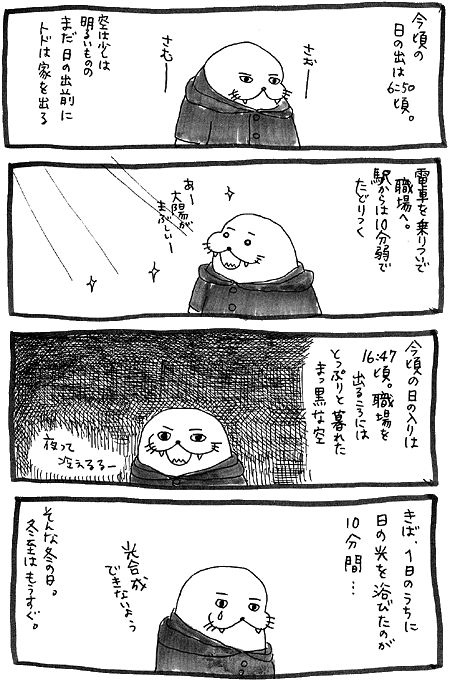 今頃の
日の出は
6:50
頃。
さむ――
さむ――
空は少しは
明るいものの
まだ日の出前に
トドは家を出る
電車を乗りついで
職場へ。
駅からは10分弱で
たどりつく
あー
太陽が
まぶしいー
今頃の日の入りは
16:47
頃。職場を
出るころには
とっぷりと暮れた
まっ黒な空
夜って
冷えるるー
きば、1日のうちに
日の光を浴びたのが
10分間…
光合成
できないよぅ
そんな冬の日。
冬至はもうすぐ。